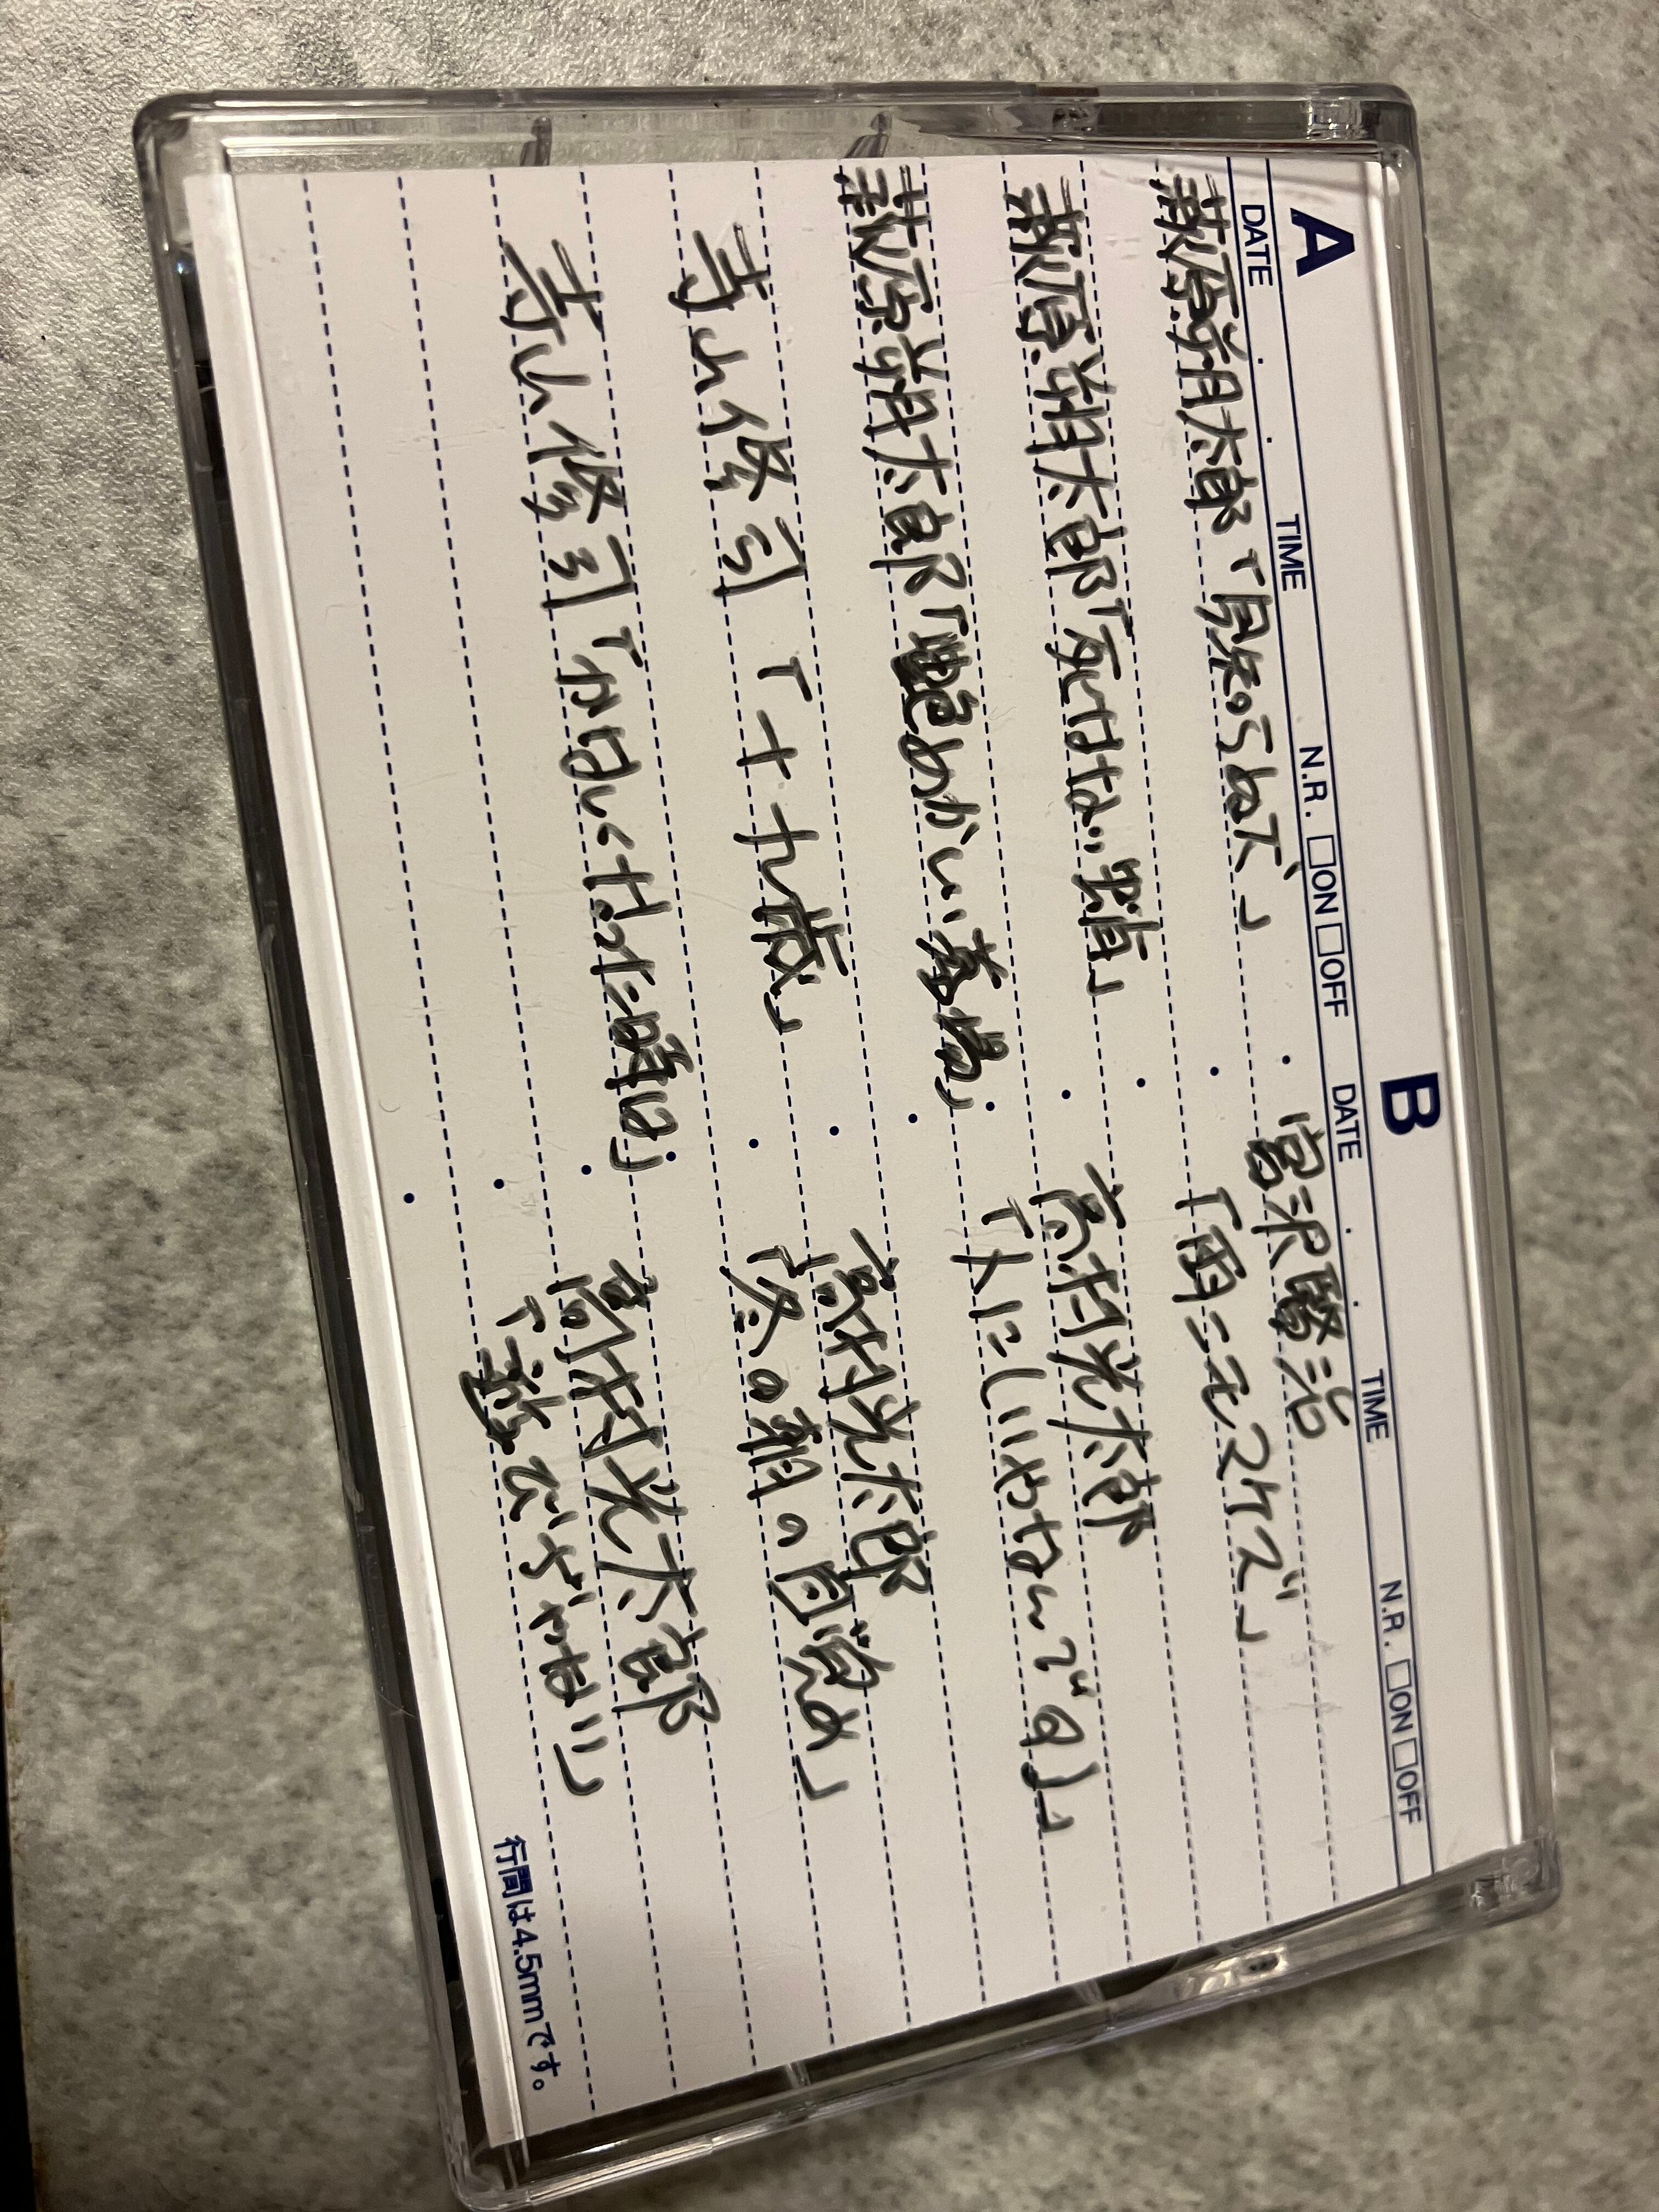 A B
DATE TIME N.R. □ON□OFF DATE TIME N.R. □ON□OFF
萩原朔太郎「見知らぬ犬」
萩原朔太郎「死なない蛸」
萩原朔太郎「艶めかしい墓場」
寺山修司「十九歳」
寺山修司
宮沢賢治
「雨ニモマケズ」
高村光太郎
「人に(いやなんです)」
高村光太郎
「冬の朝の目覚め」
高村光太郎
「遊びぢゃない」
行間は4.5mmです。